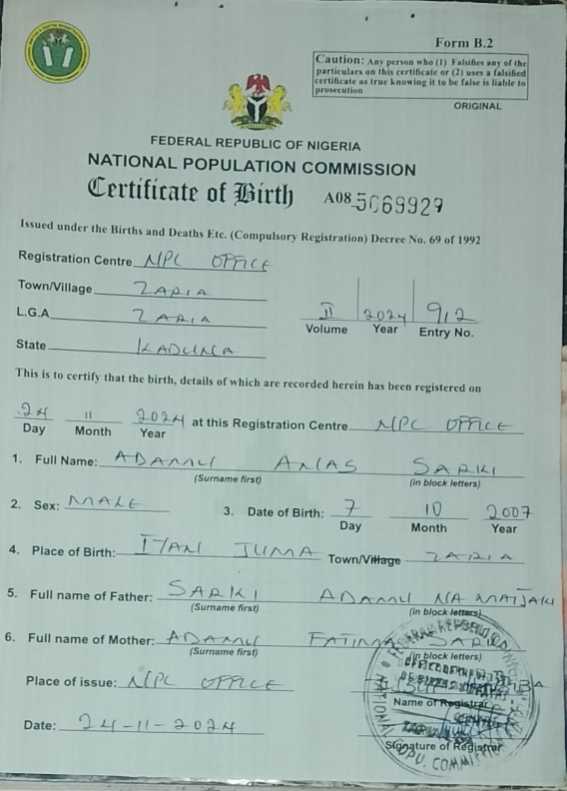 Form B.2
Caution: Any person who (1) Falsifies any of the
particulars on this certificate or (2) uses a falsified
certificate as true knowing it to be false is liable to
prosecution
ORIGINAL
FEDERAL REPUBLIC OF NIGERIA
NATIONAL POPULATION COMMISSION
Certificate of Birth A08 5069927
Issued under the Births and Deaths Etc. (Compulsory Registration) Decree No. 69 of 1992
Registration Centre NPC OFFICE
Town/Village ZARIA
L.G.A ZARIA
II 2024 912
Volume Year Entry No.
State KADUNA
This is to certify that the birth, details of which are recorded herein has been registered on
24 11 2024 at this Registration Centre NPC OFFICE
Day Month Year
1. Full Name: ADAMU ANAS SARKI
(Surname first) (in block letters)
2. Sex: MALE 3. Date of Birth: 7 10 2007
Day Month Year
4. Place of Birth: JUMA Town/Village ZARIA
5. Full name of Father: SARKI ADAMU NA MAIJAKI
(Surname first) (in block letters)
6. Full name of Mother: ADAMU FATIMA SARKI
(Surname first) (in block letters)
Place of issue: NPC OFFICE
Name of Registrar
Date: 24-11-2024
Signature of Registrar